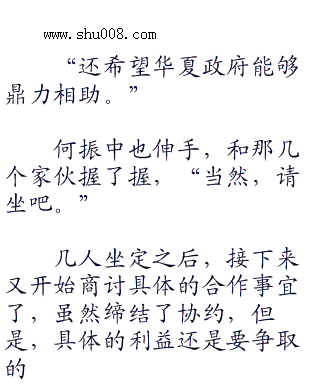 www.shu008.com
“还希望华夏政府能够
鼎力相助。”
何振中也伸手，和那几
个家伙握了握，“当然，请
坐吧。”
几人坐定之后，接下来
又开始商讨具体的合作事宜
了，虽然缔结了协约，但
是，具体的利益还是要争取
的